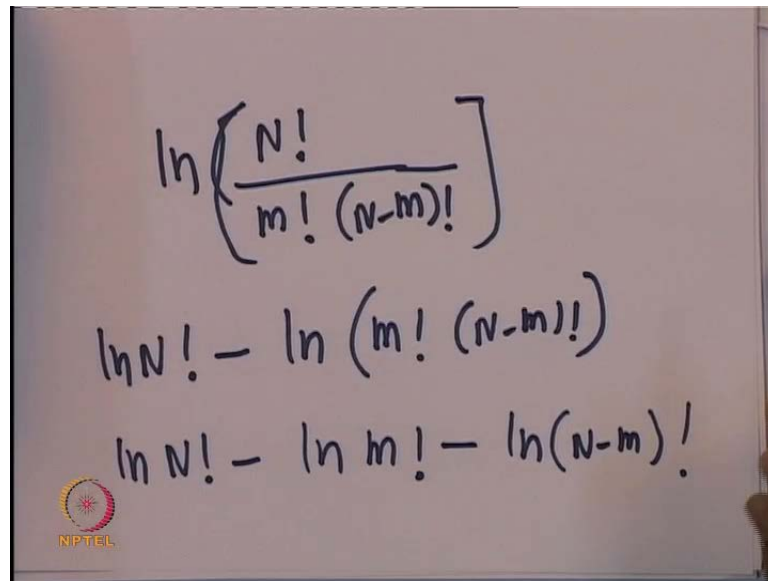 ln [ N! / m! (N-m)! ]
ln N! - ln (m! (N-m)!)
ln N! - ln m! - ln(N-m)!
NPTEL